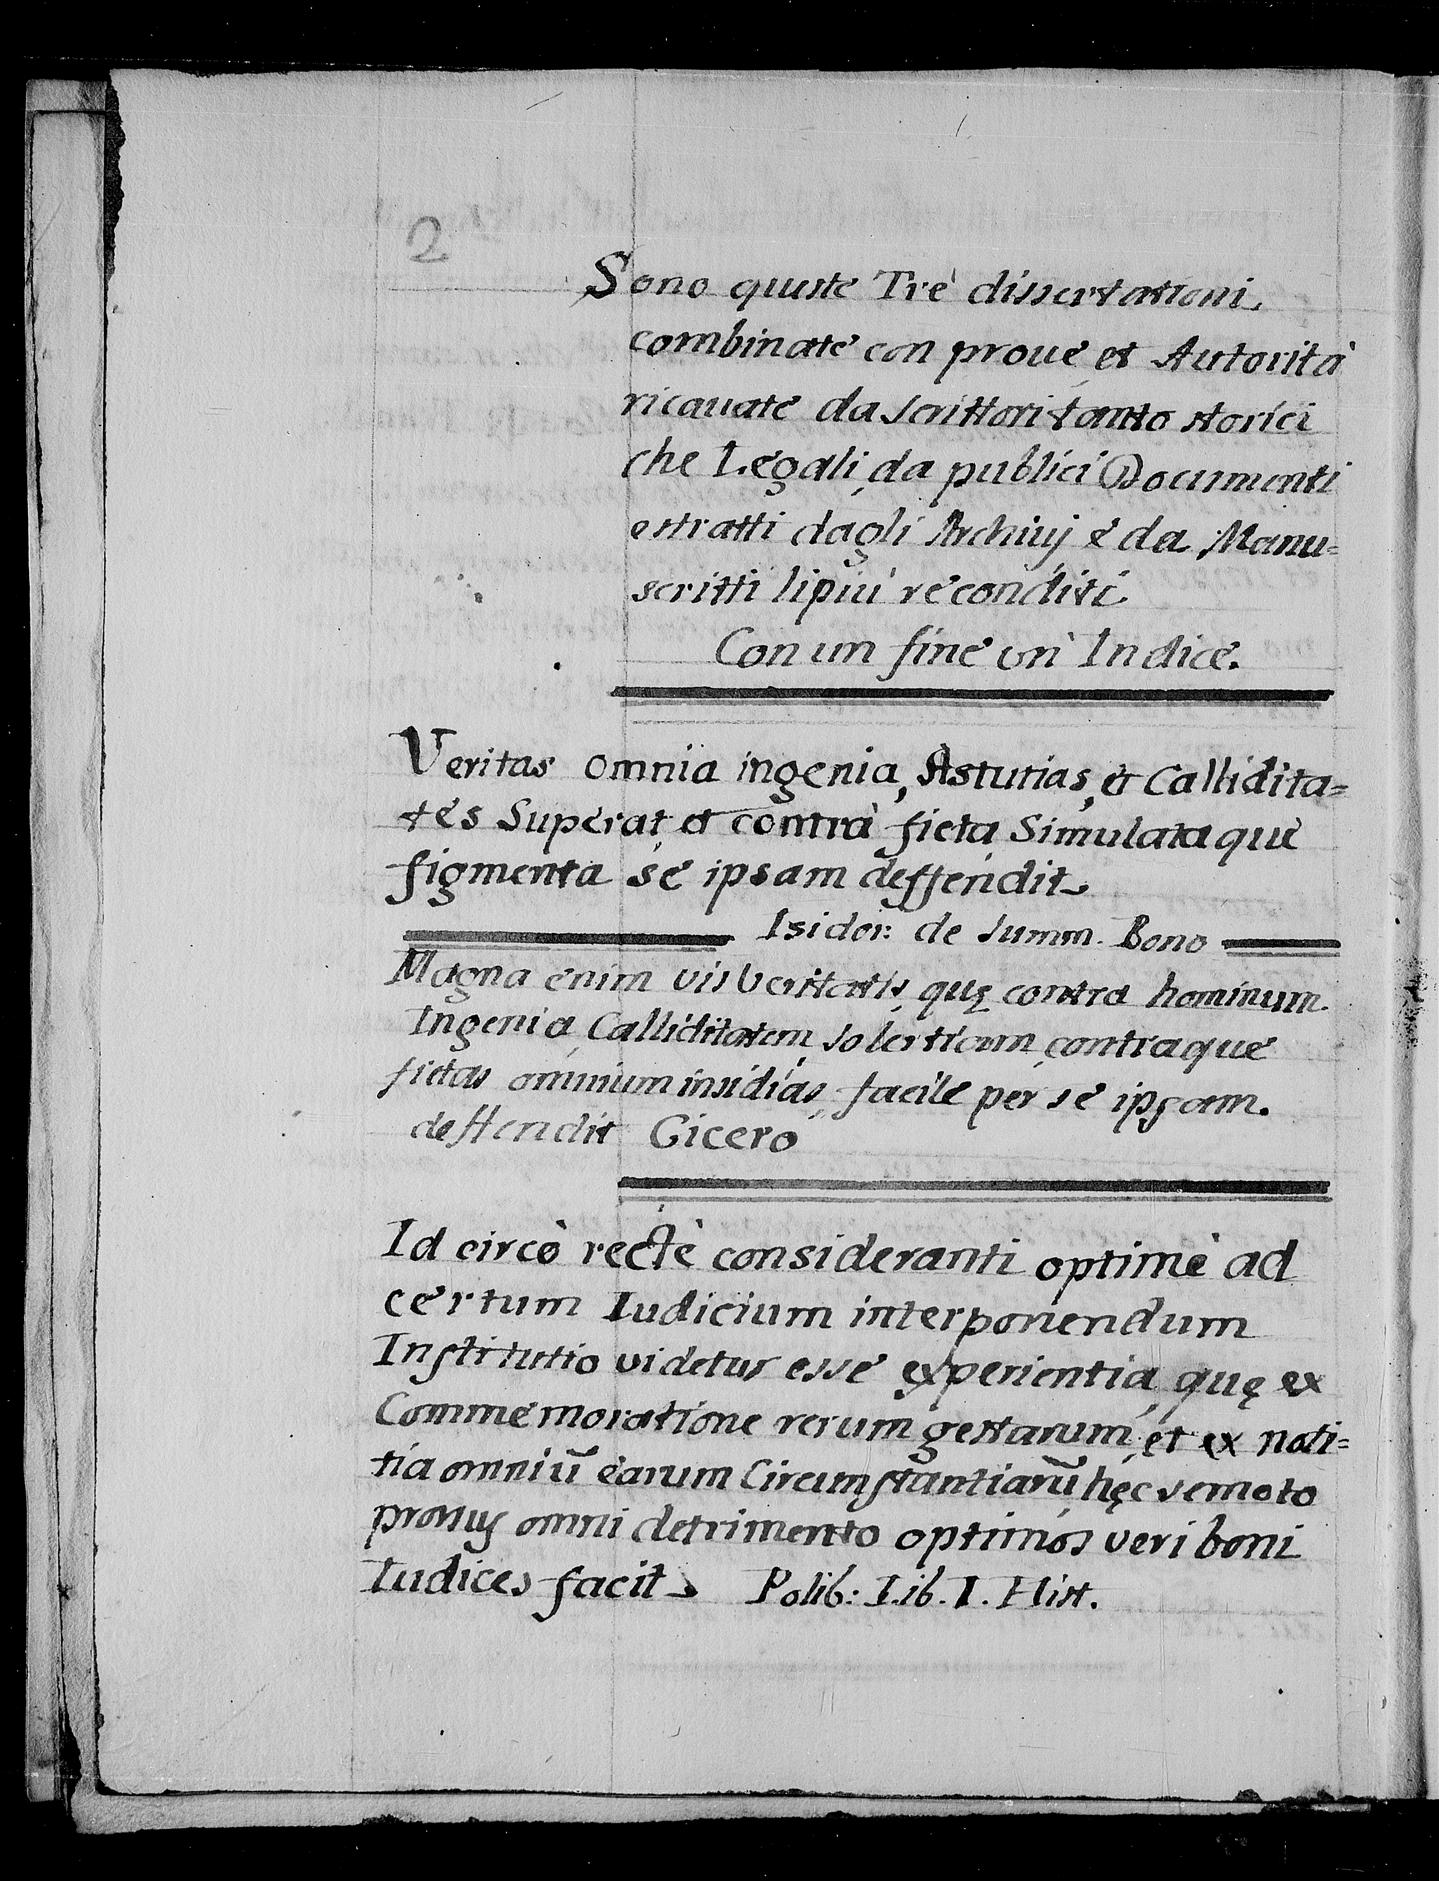 2
Sono queste Tre dissertationi
combinate con proue, et Autorità
ricauate da scrittori tanto storici
che Legali, da publici Documenti
estratti dagli Archiuij è da Manu=
scritti li più reconditi
Con un fine un Indice.
Veritas omnia ingenia, Astutias, et Callidita=
tes Superat, et contrà ficta Simulataque
figmenta se ipsam deffendit
Isidor: de summ. Bono
Magna enim uis Veritatis, quę contra hominum
Ingenia, Calliditatem, solertiam, contraque
fictas omnium insidias, facile per se ipsam.
deffendit Cicero
Id circò rectè consideranti optimè ad
certum Iudicium interponendum
Institutio videtur esse experientia, quę ex
Commemoratione rerum gestarum, et ex noti=
tia omniū earum Circumstantiarū, hęc semoto
prorsus omni detrimento optimos veri boni
Iudices facit Polib: Lib. I. Hist.